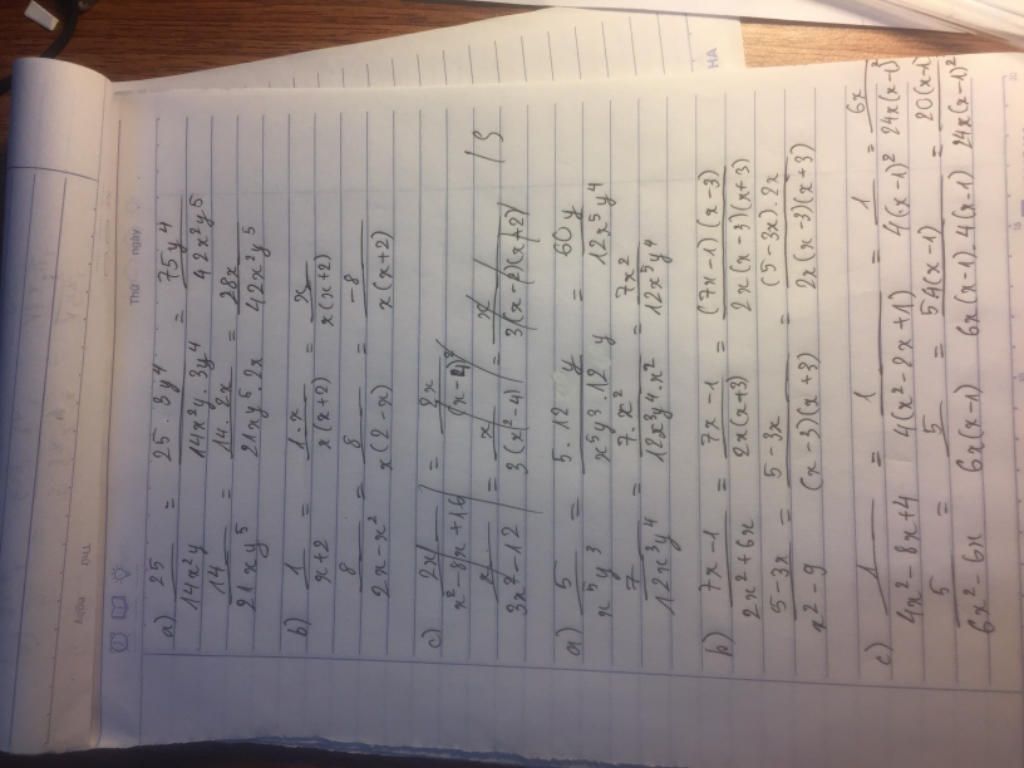 Thứ ngày
a) 25/14x²y = 25 . 3y⁴/14x²y . 3y⁴ = 75y⁴/42x²y⁵
14/21xy⁵ = 14 . 2x/21xy⁵ . 2x = 28x/42x²y⁵
b) 1/x+2 = 1.x/x(x+2) = x/x(x+2)
8/2x-x² = 8/x(2-x) = -8/x(x+2)
c) 2x/x²-8x+16 = 2x/(x-4)²
x/3x²-12 = x/3(x²-4) = x/3(x-2)(x+2)
15
a) 5/x⁵y³ = 5.12y/x⁵y³.12y = 60y/12x⁵y⁴
7/12x³y⁴ = 7.x²/12x³y⁴.x² = 7x²/12x⁵y⁴
b) 7x-1/2x²+6x = 7x-1/2x(x+3) = (7x-1)(x-3)/2x(x-3)(x+3)
5-3x/x²-9 = 5-3x/(x-3)(x+3) = (5-3x).2x/2x(x-3)(x+3)
c) 1/4x²-8x+4 = 1/4(x²-2x+1) = 1/4(x-1)² = 6x/24x(x-1)²
5/6x²-6x = 5/6x(x-1) = 5.4(x-1)/6x(x-1).4(x-1) = 20(x-1)/24x(x-1)²